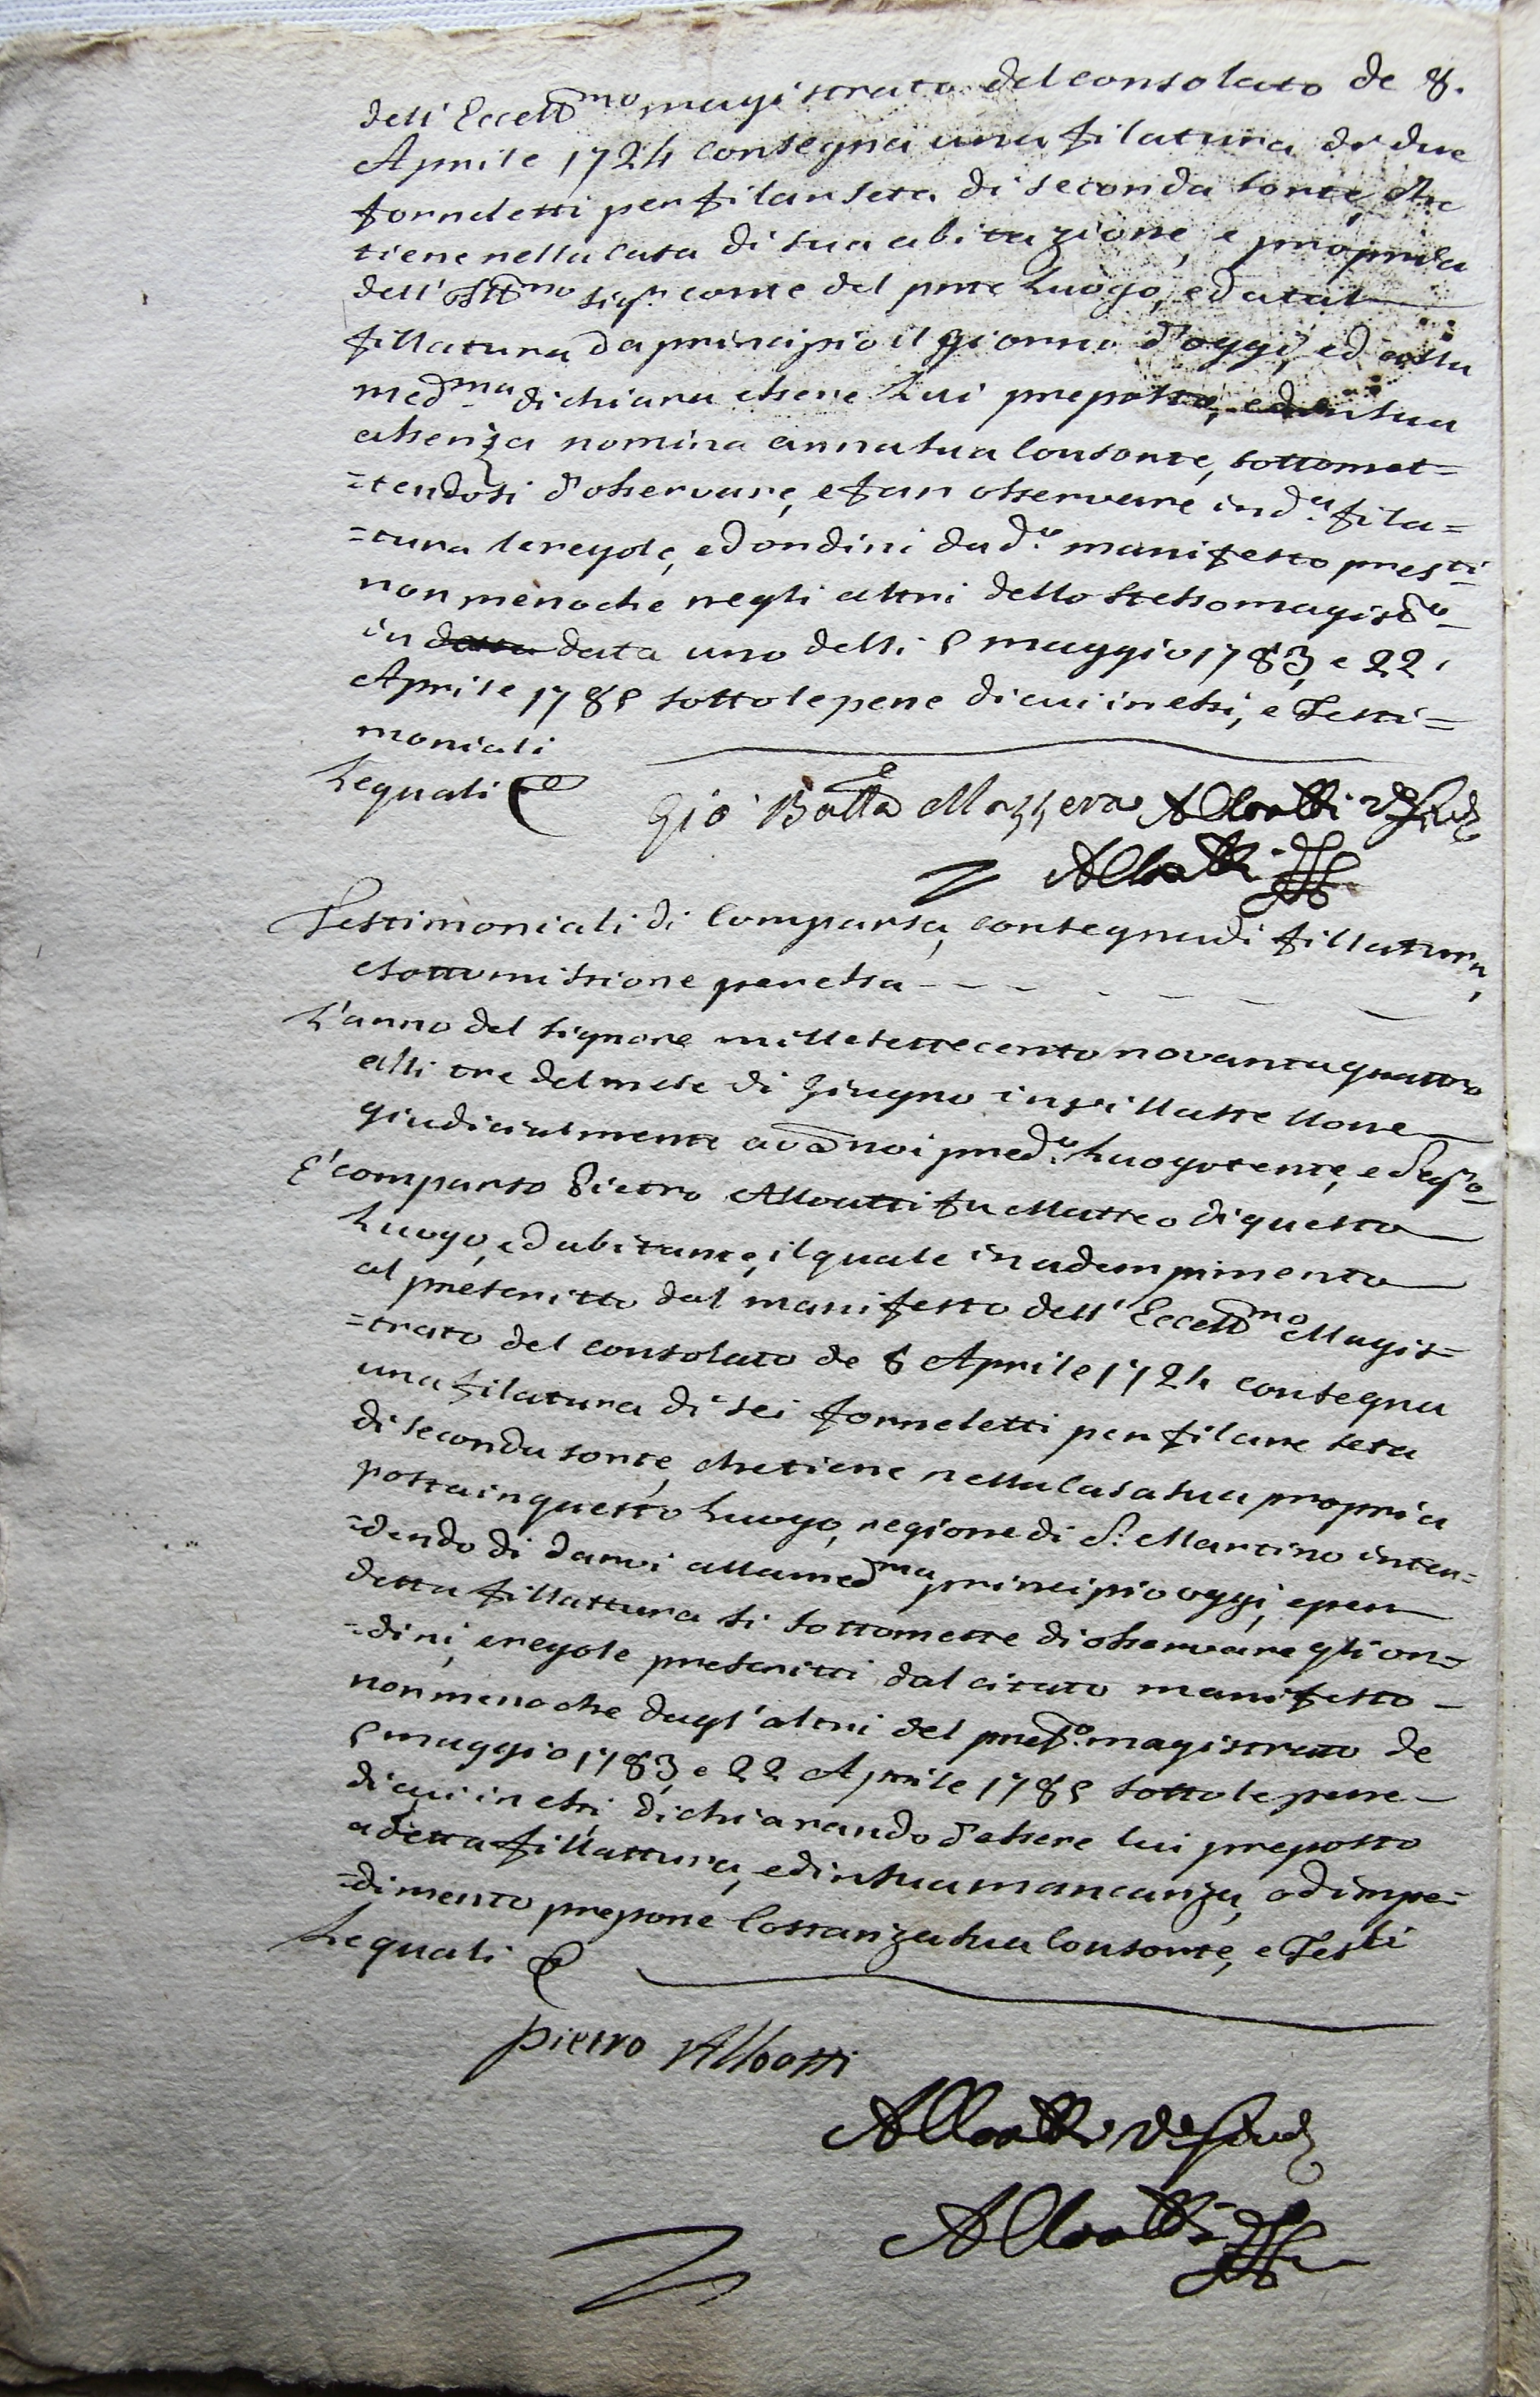 dell'Eccell.mo magistrato del consolato de 8.
Aprile 1724 consegna una filatura di due
forneletti per filar seta di seconda sorte, che
tiene nella casa di sua abitazione, e propria
dell'Ill.mo sig.r conte del pnte Luogo, ed a tal
fillatura da principio il giorno d'oggi, ed alla
med.ma dichiara essere Lui preposto, ed in sua
assenza nomina anna sua Consorte, sottomet=
=tendosi d'osservare, e far osservare in d.a fila=
=tura le regole, ed ordini da d.o manifesto pres.ti
non meno che negli altri dello stesso magist.o
in data uno delli 5 maggio 1783, e 22
Aprile 1785 sotto le pene di cui in essi, e Testi=
moniali
Lequali
Gio Batta Mazzera Alloatti
Alloatti
Testimoniali di Comparsa, consegna di fillatura,
e sottomissione per essa
L'anno del signore mille settecento novanta quattro
alli tre del mese di Giugno in villastellone
giudicialmente avanti noi pred.o Luogotente, e Seg.o
È comparso Pietro Alloatti fu Matteo di questo
Luogo, ed abitante, il quale in adempimento
al prescritto dal manifesto dell'Eccell.mo Magis=
=trato del consolato de 8 Aprile 1724 consegna
una filatura di sei forneletti per filare seta
di seconda sorte, che tiene nella casa sua propria
posta in questo Luogo, regione di S. Martino inten=
=dendo di darvi alla med.ma principio oggi, e per
detta fillattura si sottomette di osservare gli or=
=dini, e regole prescritti dal citato manifesto
non meno che dagl'altri del pref.o magistrato de
5 maggio 1783, e 22 Aprile 1785 sotto le pene
di cui in essi, dichiarando d'essere lui preposto
a detta fillattura, ed in sua mancanza, od impe=
=dimento prepone Costanza sua Consorte, e Tes.li
Lequali
Pietro Alloatti
Alloatti
Alloatti